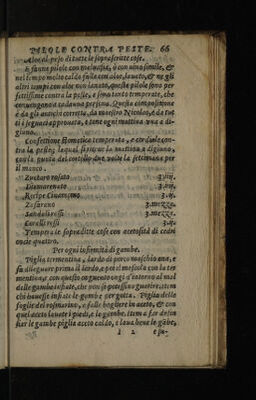 PILOLE CONTRA PESTE. 66
aloe al peso di tutte le soprascritte cose.
E fanne pilole con maluasia, ò con uino simile, &
nel tempo molto caldo fasse con aloe lauato, & ne gli
altri tempi con aloe non lauato, queste pilole sono per
fettissime contra la peste, e sono tanto temperate, che
conuengono a cadauna persona. Questa compositione
è da gli antichi corretta, da maestro Nicolao, & da tut
ti i seguaci approuata, e tiene ogni mattina una a di-
giuno.
Confettione stomatica temperata, e cordiale con-
tra la peste, laqual si a la mattina a digiuno,
con la punta del coltello due uolte la settimana per
il manco.
Zucharo rosato 3.iiij.
Diamarenato 3.iij.
Recipe Cinamomo 3.ij.
Zafarano 3.mezza.
Sandoli rossi 3.mezza.
Coralli rossi 3.ij.
Tempera le sopradditte cose con acetosità di cedri
oncie quattro.
Per ogni infirmità di gambe.
Piglia termentina, lardo di porco maschio ana, e
fa disleguare prima il lardo, e poi il mescola con la ter
mentina, & con questo onguento ungi d'intorno al mal
delle gambe infiate, che uen si possano guarire, item
chi hauesse infiate le gambe per gotta. Piglia delle
foglie del rosmarino, e falle bogliere in aceto, & con
quel aceto lauate i piedi, e le gambe. item a far desin
fiar le gambe piglia aceto caldo, e laua bene le gābe,
I 2